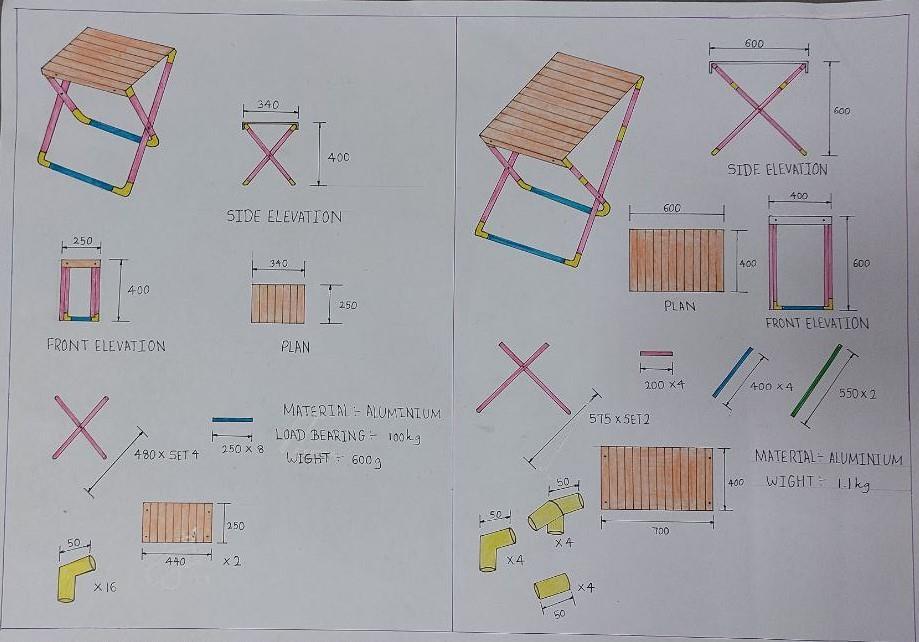 340
400
SIDE ELEVATION
250
400
FRONT ELEVATION
340
250
PLAN
480 x SET 4
250 x 8
MATERIAL :- ALUMINIUM
LOAD BEARING :- 100kg
WIGHT :- 600g
250
440
x 2
50
x 16
600
600
SIDE ELEVATION
600
400
PLAN
400
600
FRONT ELEVATION
575 x SET 2
200 x 4
400 x 4
550 x 2
MATERIAL :- ALUMINIUM
WIGHT :- 1.1kg
400
700
50
x 4
50
x 4
x 4
50